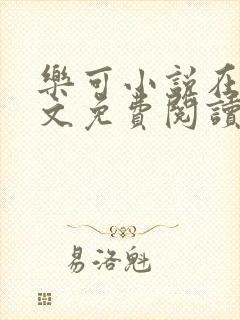 樂可小說在
文免費閱讀
易洛魁